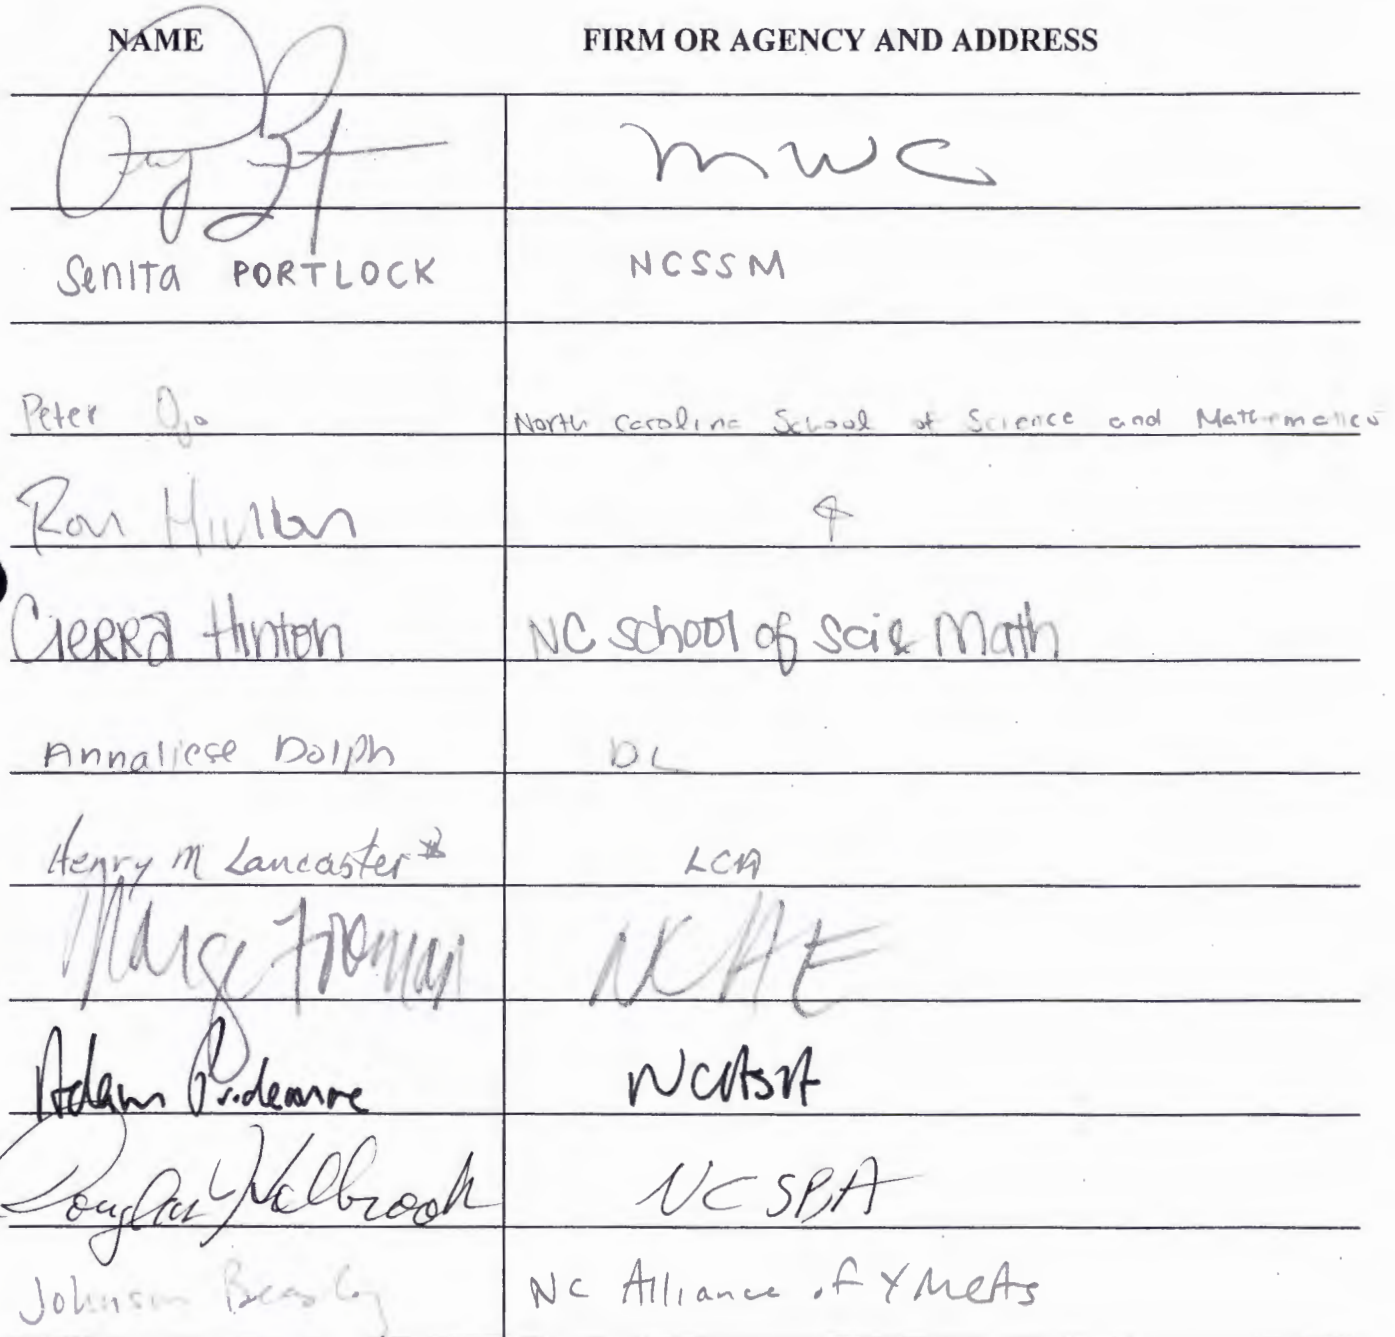 NAME FIRM OR AGENCY AND ADDRESS
MWC
Senita PORTLOCK NCSSM
Peter Ojo North Carolina School of Science and Mathematics
Ron Hinton &
Cierra Hinton NC School of Sci & Math
Annaliese Dolph DL
Henry M Lancaster LCA
Marge Foreman NCAE
Adam Pridemore NCASA
Douglas Holbrook NCSBA
Johnson Beasley NC Alliance of YMCAs